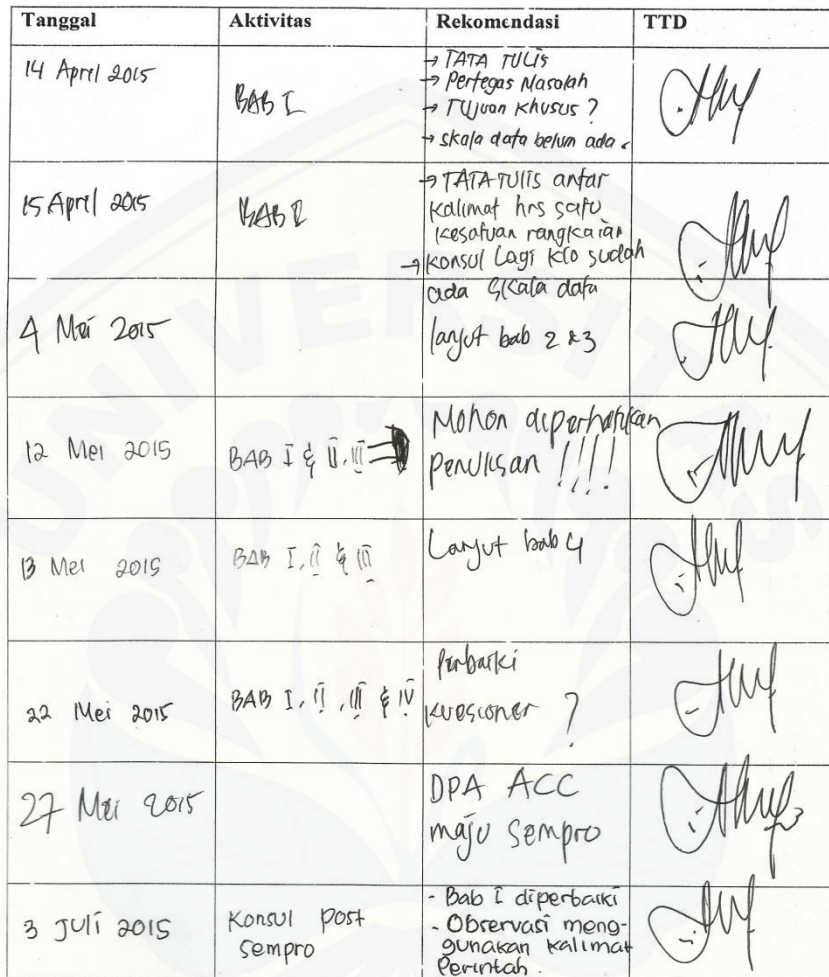 Tanggal Aktivitas Rekomendasi TTD
14 April 2015
BAB I
→ TATA TULIS
→ Pertegas Masalah
→ Tujuan Khusus ?
→ skala data belum ada.
15 April 2015
BAB I
→ TATA TULIS antar
kalimat hrs satu
kesatuan rangkaian
→ konsul Lagi klo sudah
ada skala data
4 Mei 2015
lanjut bab 2 & 3
12 Mei 2015
BAB I & II, III
Mohon diperhatikan
penulisan !!!!
13 Mei 2015
BAB I, II & III
Lanjut bab 4
22 Mei 2015
BAB I, II, III & IV
Perbaiki
kuesioner ?
27 Mei 2015
DPA ACC
maju sempro
3 Juli 2015
Konsul post
sempro
- Bab I diperbaiki
- Observasi meng-
gunakan kalimat
Perintah.
UNIVERSITAS